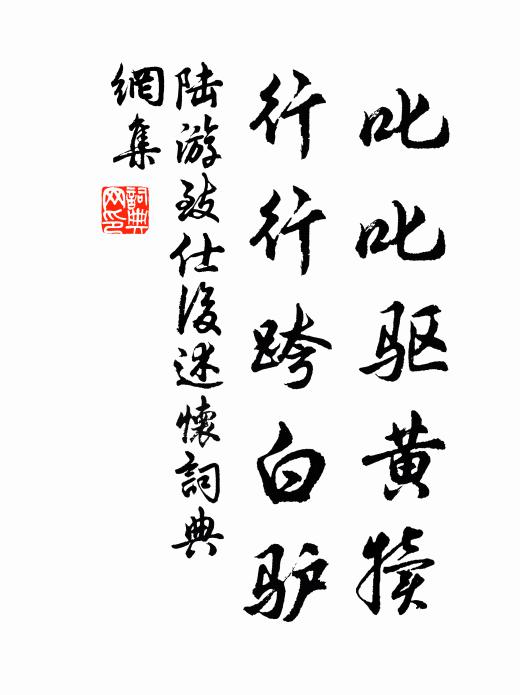 叱叱驱黄犊
行行跨白驴
陆游致仕後述懷詞典
網集
詞典網印